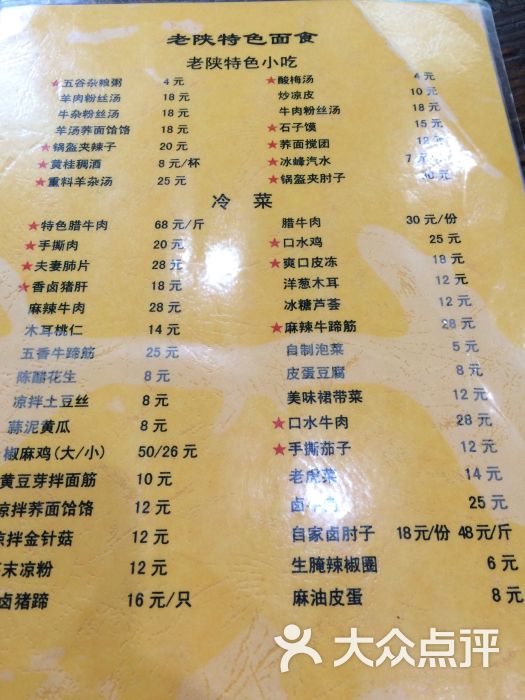 老陕特色面食
老陕特色小吃
★五谷杂粮粥 4 元
羊肉粉丝汤 18 元
牛杂粉丝汤 18 元
羊汤荞面饸饹 18 元
★锅盔夹辣子 20 元
★黄桂稠酒 8 元/杯
★重料羊杂汤 25 元
★酸梅汤 4 元
炒凉皮 10 元
牛肉粉丝汤 18 元
★石子馍 15 元
★荞面搅团 12 元
★冰峰汽水 7
★锅盔夹肘子 元
冷 菜
★特色腊牛肉 68 元/斤
★手撕肉 20 元
★夫妻肺片 28 元
★香卤猪肝 18 元
麻辣牛肉 28 元
木耳桃仁 14 元
五香牛蹄筋 25 元
陈醋花生 8 元
凉拌土豆丝 8 元
蒜泥黄瓜 8 元
椒麻鸡(大/小) 50/26 元
黄豆芽拌面筋 10 元
凉拌荞面饸饹 12 元
凉拌金针菇 12 元
末凉粉 12 元
卤猪蹄 16 元/只
腊牛肉 30 元/份
★口水鸡 25 元
★爽口皮冻 18 元
洋葱木耳 12 元
冰糖芦荟 12 元
★麻辣牛蹄筋 28 元
自制泡菜 5 元
皮蛋豆腐 8 元
美味裙带菜 12 元
★口水牛肉 28 元
★手撕茄子 12 元
老虎菜 14 元
卤牛 25 元
自家卤肘子 18元/份 48元/斤
生腌辣椒圈 6 元
麻油皮蛋 8 元
大众点评